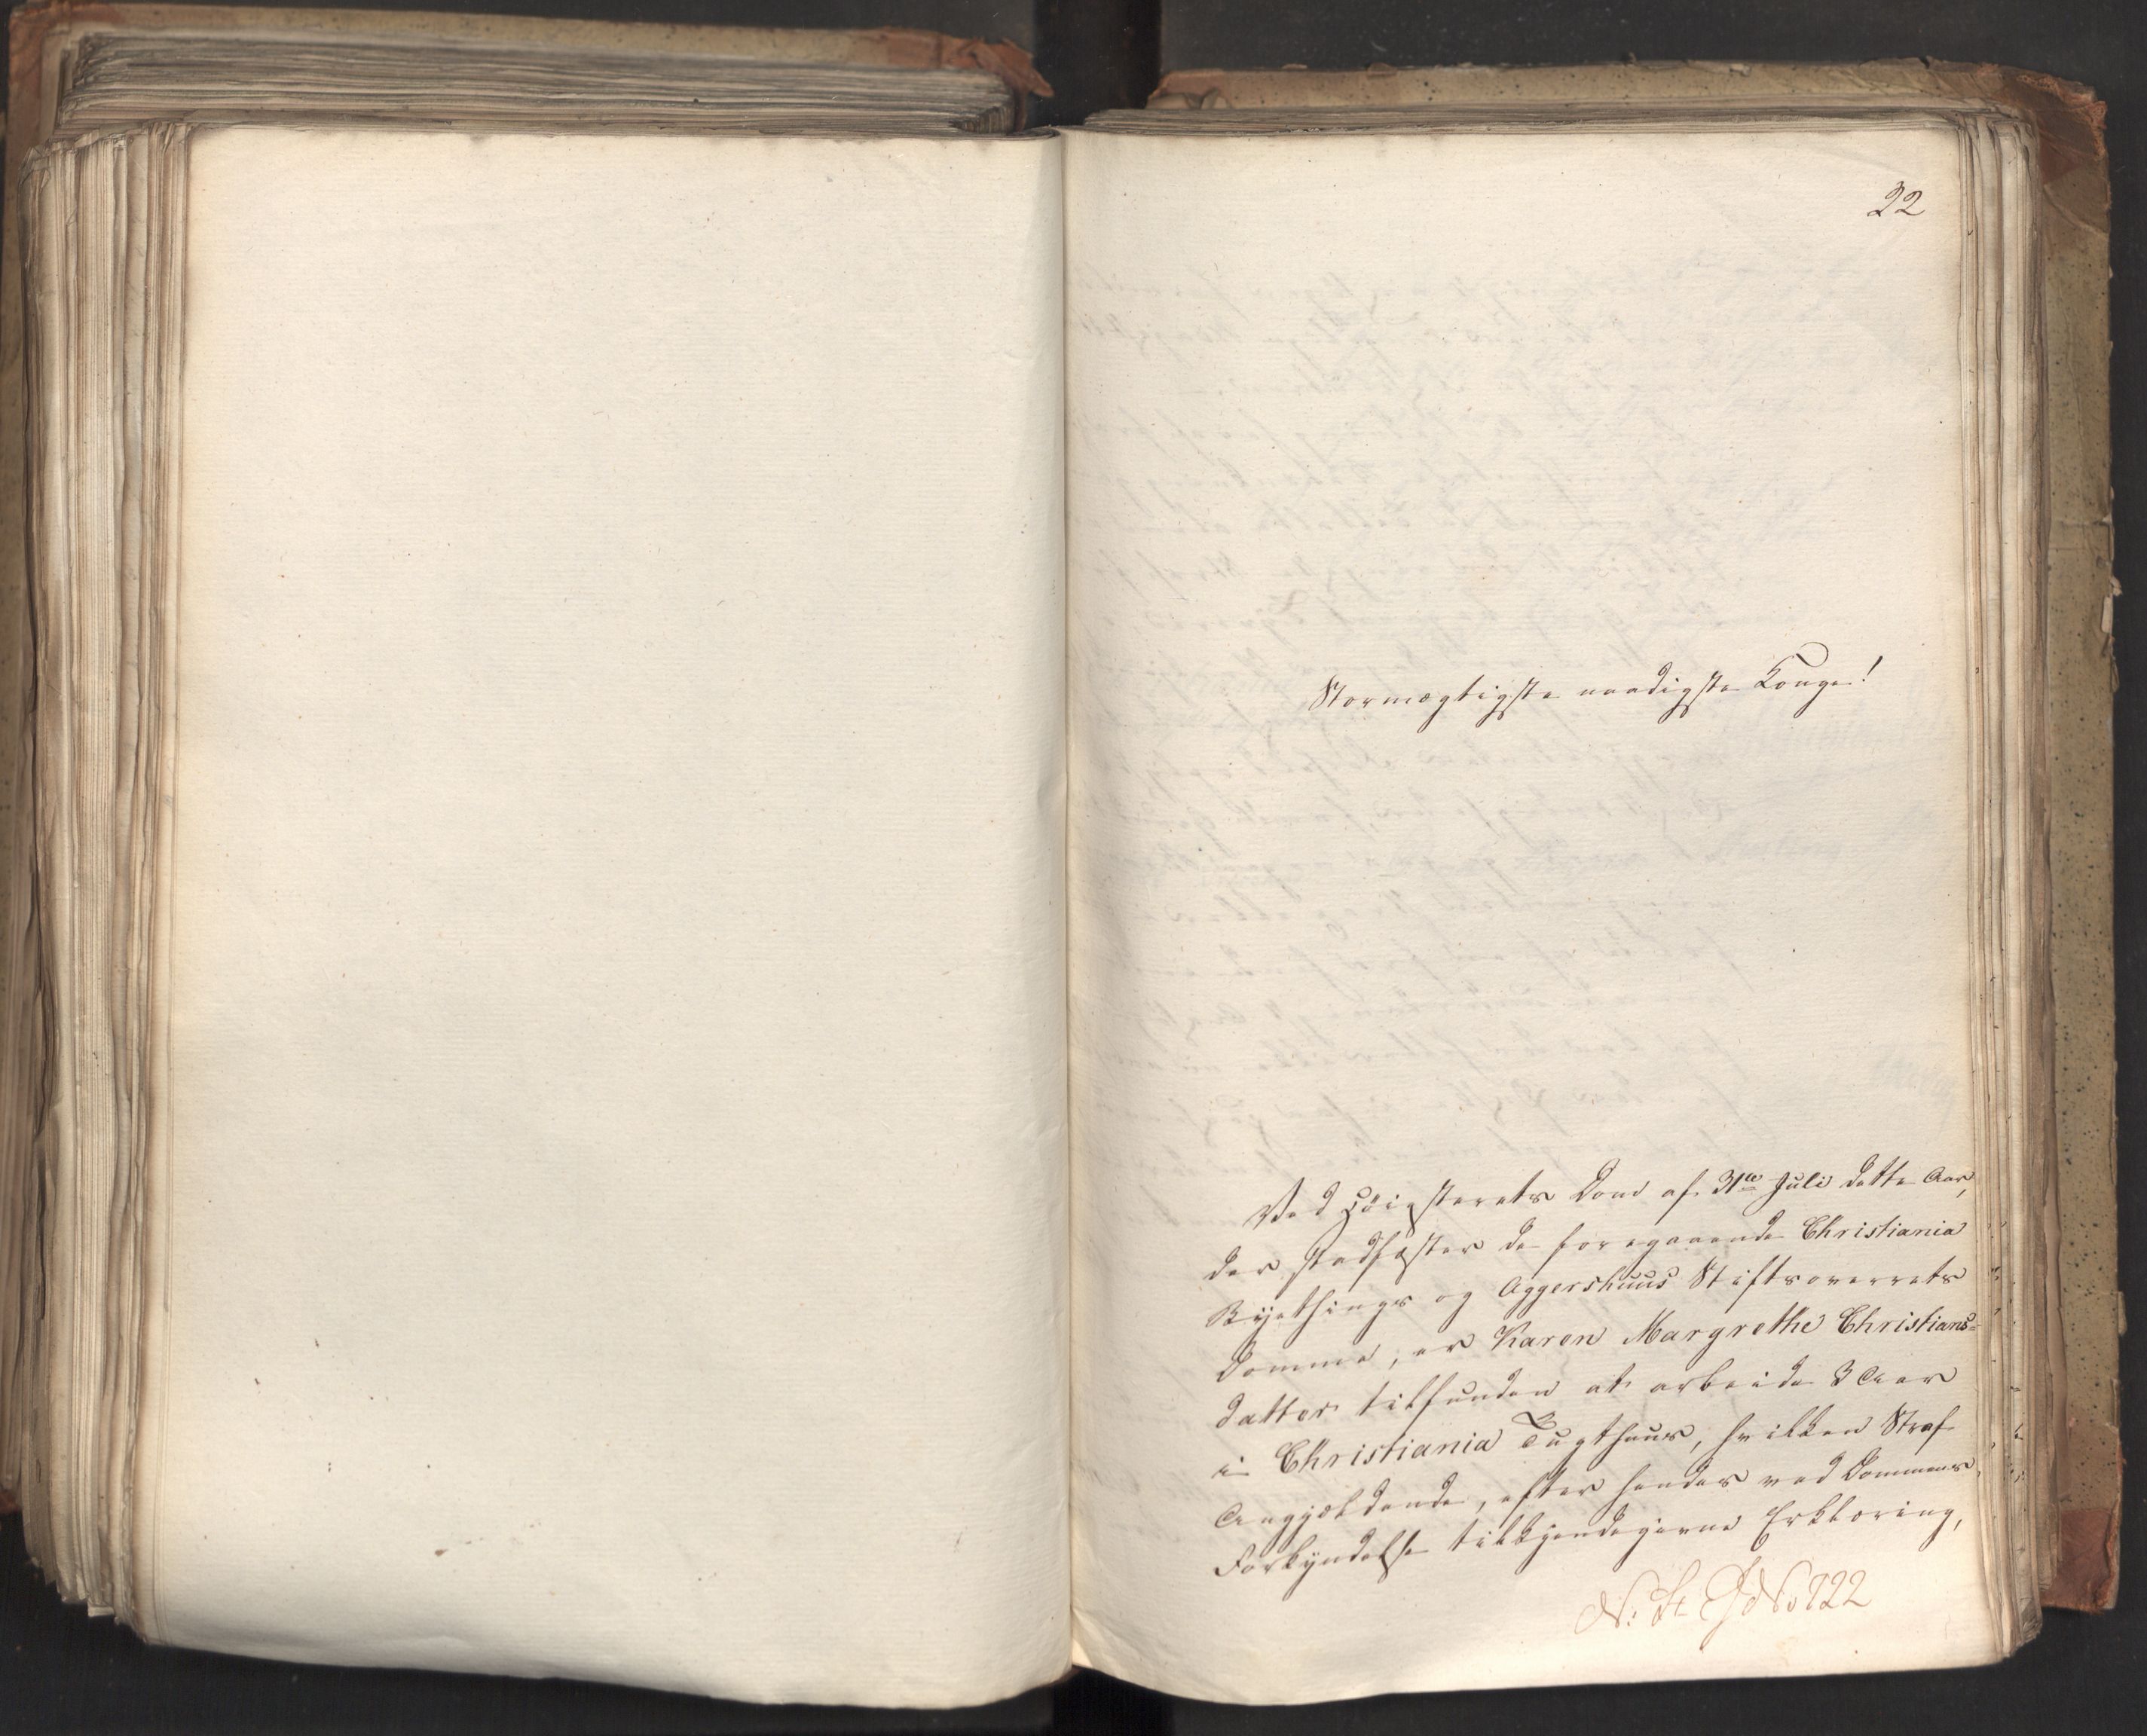 22
Stormægtigste naadigste Konge!
Ved Höiesterets Dom af 31te Juli dette Aar,
der stadfæster de foregaaende Christiania
Byethings og Aggershuus Stiftsoverrets
Domme, er Karen Margrethe Christians-
datter tilfunden at arbeide 3 Aar
i Christiania Tugthuus, hvilken Straf
Angjældende, efter hendes ved Dommens
Forkyndelse tilkjendegivne Erklæring,
N: St J No 722